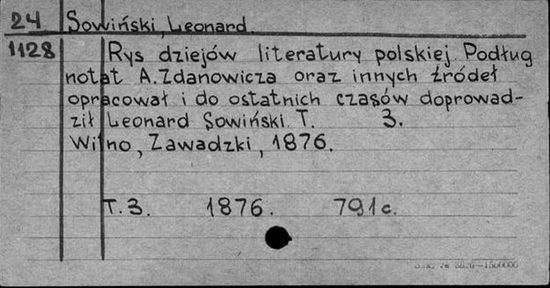 24 Sowiński, Leonard.
1128 Rys dziejów literatury polskiej Podług
notat A. Zdanowicza oraz innych źródeł
opracował i do ostatnich czasów doprowad-
ził Leonard Sowiński T. 3.
Wilno, Zawadzki, 1876.
T. 3. 1876. 791c.